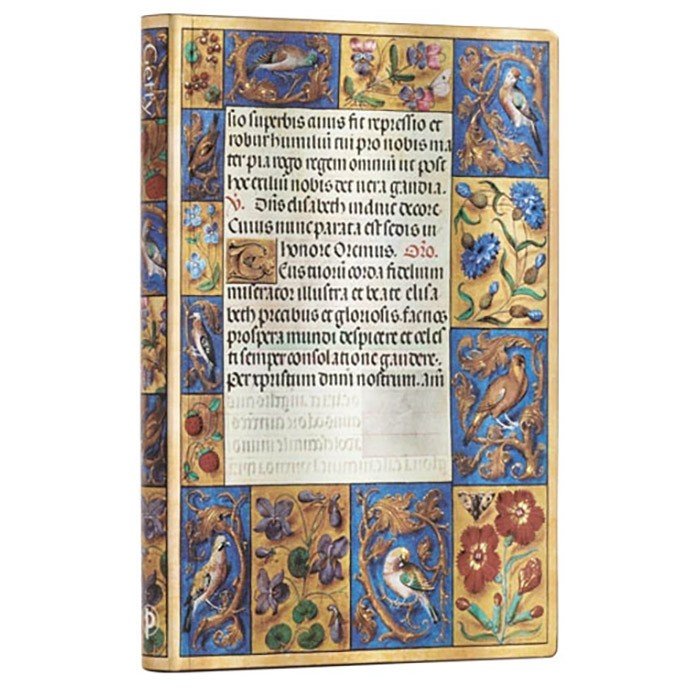 Getty
sio superbis cuius fit repressio et
robur humiliũ cui pro nobis ma
ter pia rogo regem omniũ ut post
hoc exiliũ nobis det uera gaudia.
V. Dñs elisabeth induit decore
Cuius nunc parata est sedis in
honore Oremus. Orõ.
Tuorũ corda fidelium
miserator illustra et beate elisa
beth precibus et gloriosis. fac nos
prospera mundi despicere et celes
ti semper consolatione gaudere.
Per xpristum dnm nostrum. am